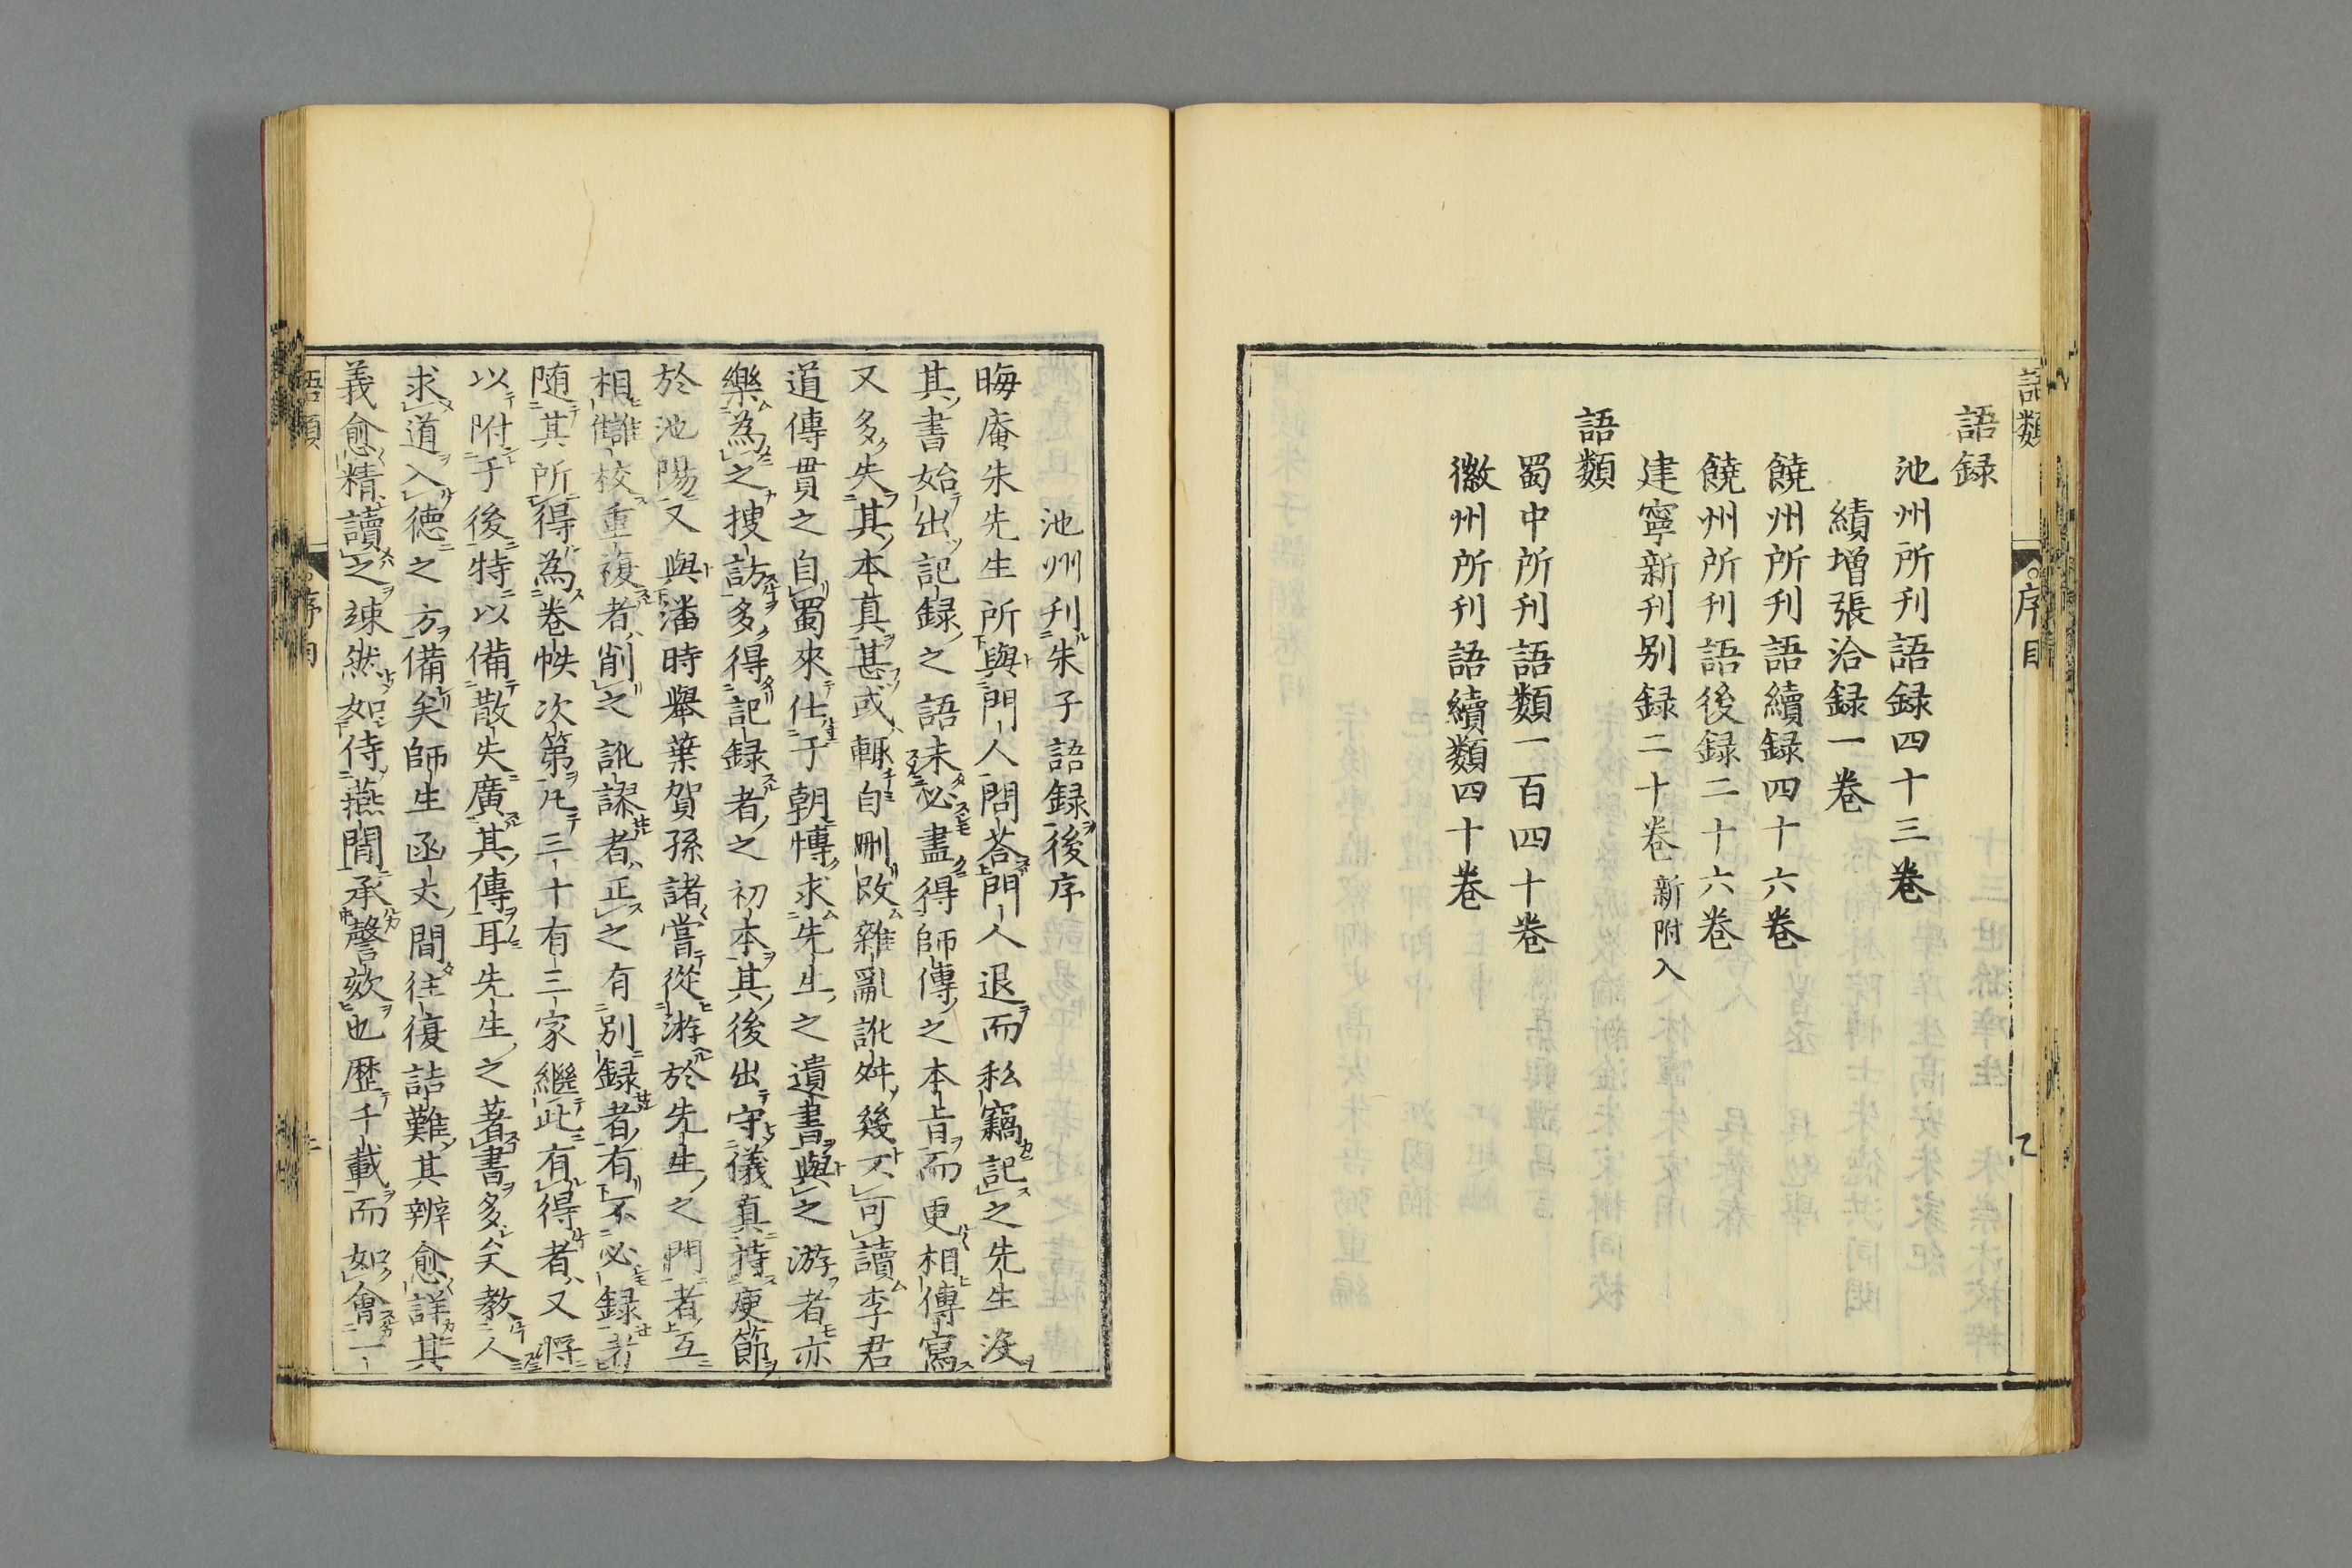 語類
序目
語録
池州所刊語録四十三卷
續增張洽録一卷
饒州所刊語續録四十六卷
饒州所刊語後録二十六卷
建寧新刊别録二十卷新附入
語類
蜀中所刊語類一百四十卷
徽州所刊語續類四十卷
池州刊朱子語録後序
晦庵朱先生所與門人問荅門人退而私竊記之先生没
其書始出記録之語未必盡得師傳之本旨而更相傳寫
又多失其本真甚或輒自刪改雜亂訛舛幾不可讀李君
道傳貫之自蜀來仕于朝博求先生之遺書與之游者亦
樂為之搜訪多得記録者之初本其後出守儀真持庾節
於池陽又與潘時舉葉賀孫諸嘗從游於先生之門者互
相讎校重復者削之訛謬者正之有别録者有不必録者
随其所得為卷帙次第凡三十有三家繼此有得者又將
以附于後特以備散失廣其傳耳先生之著書多矣教人
求道入德之方備矣師生函丈間往復詰難其辨愈詳其
義愈精讀之竦然如侍燕閒承謦欬也歴千載而如會一
語類
序目
二